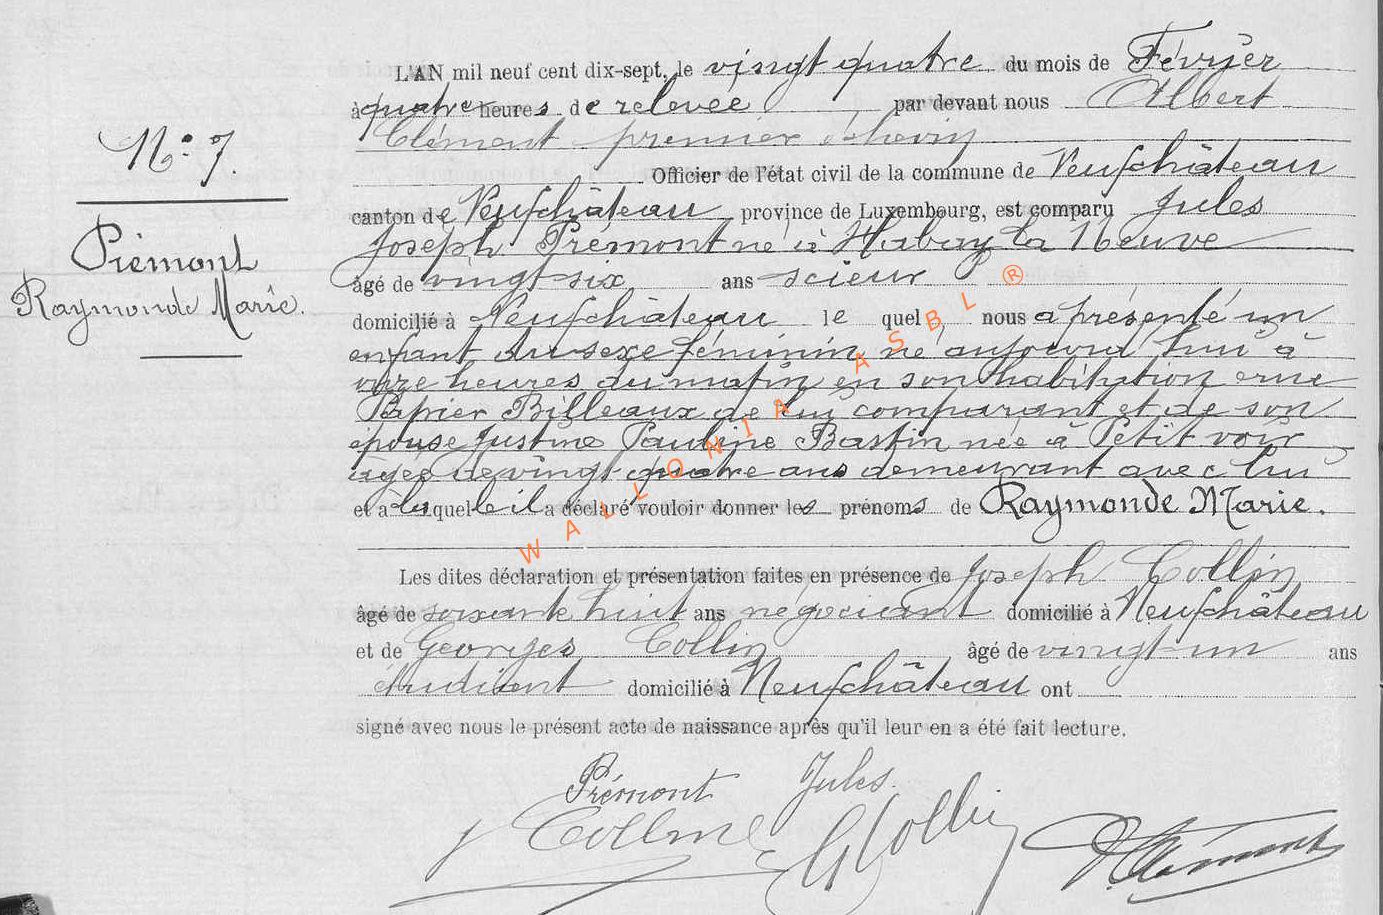 N° 7.
Prémont
Raymonde Marie.
L'AN mil neuf cent dix-sept, le vingt quatre du mois de Février
à quatre heures de relevée par devant nous Albert
Clément premier échevin
Officier de l'état civil de la commune de Neufchâteau
canton de Neufchâteau province de Luxembourg, est comparu Jules
Joseph Prémont né à Habay la Neuve
âgé de vingt six ans scieur
domicilié à Neufchâteau le quel nous a présenté un
enfant du sexe féminin né aujourd'hui à
onze heures du matin en son habitation rue
Papier Billeaux de lui comparant et de son
épouse Justine Pauline Bastin née à Petit voir
agée de vingt quatre ans demeurant avec lui
et à la quelle il a déclaré vouloir donner les prénoms de Raymonde Marie.
Les dites déclaration et présentation faites en présence de Joseph Collin
âgé de soixante huit ans négociant domicilié à Neufchâteau
et de Georges Collin âgé de vingt un ans
étudiant domicilié à Neufchâteau ont
signé avec nous le présent acte de naissance après qu'il leur en a été fait lecture.
Prémont Jules.
J Collin G Collin Clément
WALLONIA ASBL ®